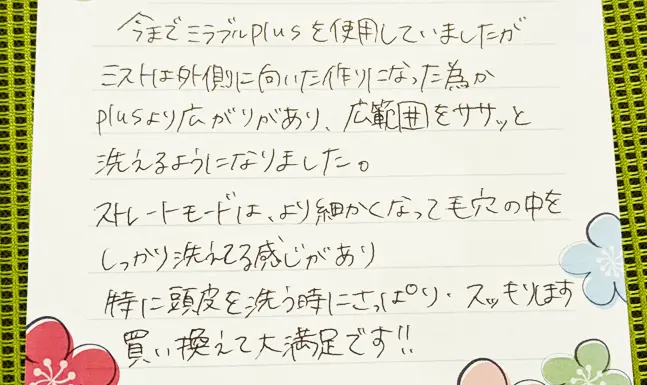 今までミラブルplusを使用していましたが
ミストは外側に向いた作りになった為か
plusより広がりがあり、広範囲をササッと
洗えるようになりました。
ストレートモードは、より細かくなって毛穴の中を
しっかり洗えてる感じがあり
特に頭皮を洗う時にさっぱり・スッキリします
買い換えて大満足です!!